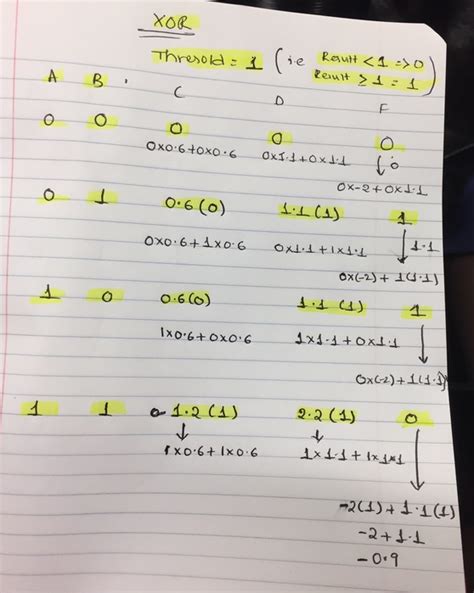 XOR
Thresold = 1 (i.e Result < 1 => 0
Result ≥ 1 = 1)
A B , C D F
0 0 0 0 0
0x0.6+0x0.6 0x1.1+0x1.1 ↓ 0
0x-2+0x1.1
0 1 0.6(0) 1.1(1) 1
0x0.6+1x0.6 0x1.1+1x1.1 ↓ 1.1
0x(-2)+1(1.1)
1 0 0.6(0) 1.1(1) 1
1x0.6+0x0.6 1x1.1+0x1.1 ↓
0x(-2)+1(1.1)
1 1 1.2(1) 2.2(1) 0
↓ ↓ ↓
1x0.6+1x0.6 1x1.1+1x1.1
-2(1)+1.1(1)
-2+1.1
-0.9